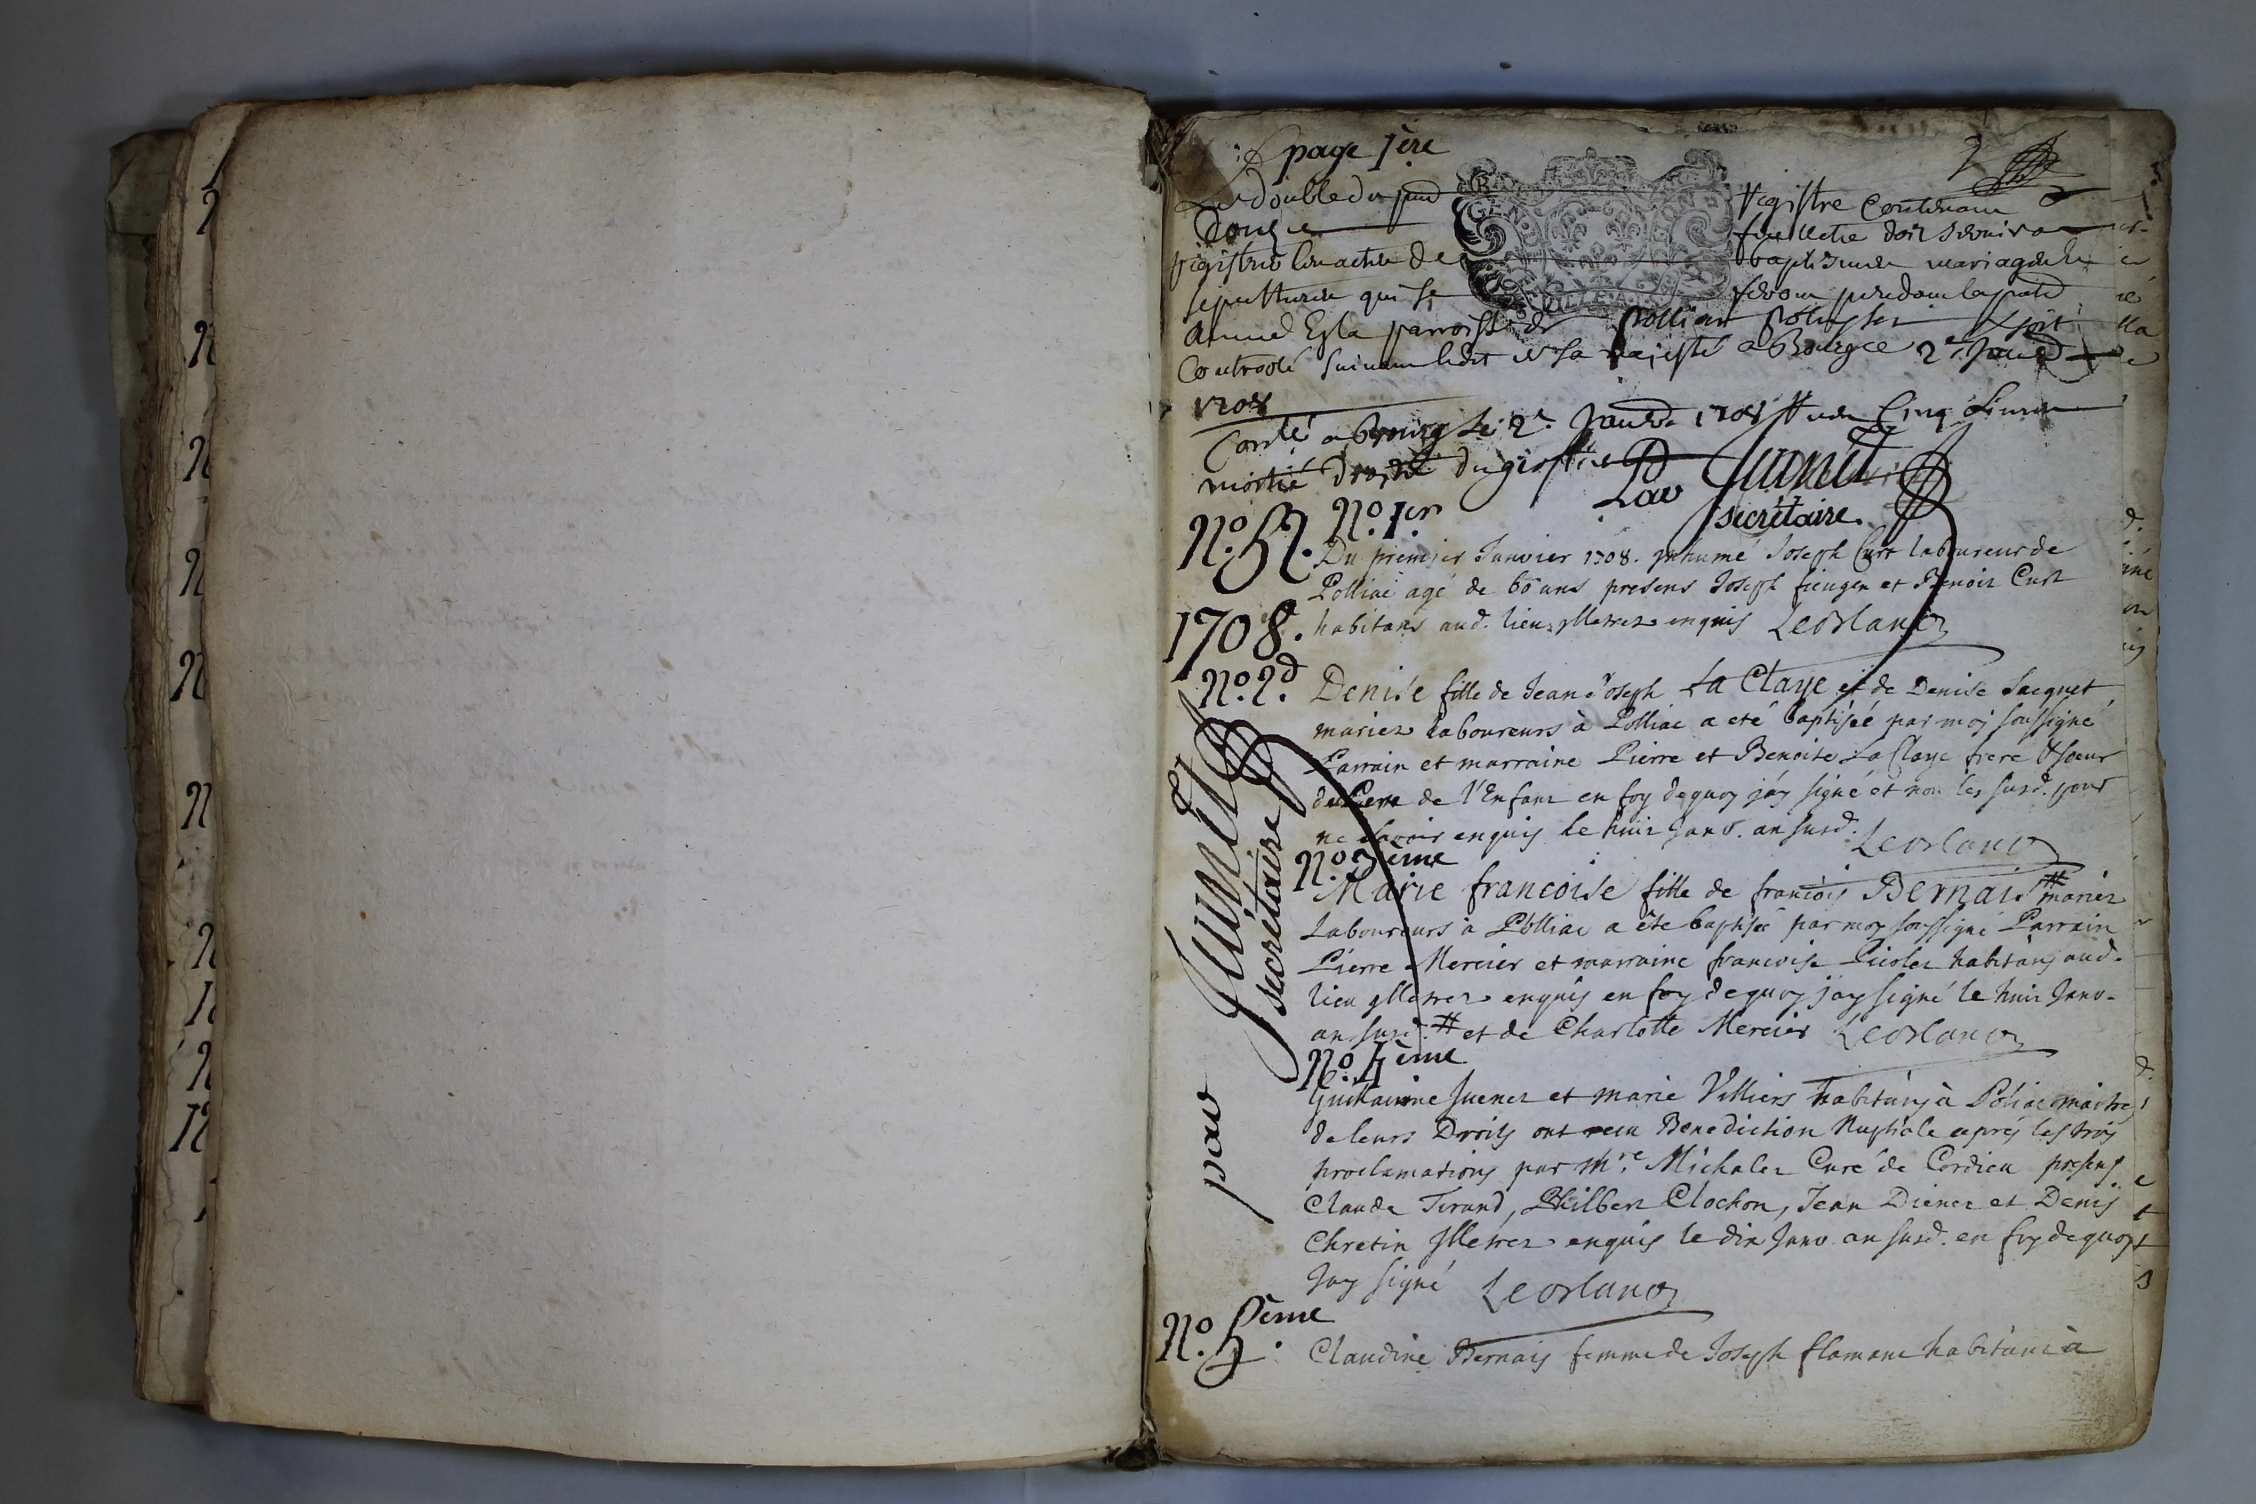 page 1ère
2
Le double du pnt Registre Contenant
Douze feuilletz doit servir a
registrer les actes de baptesmes mariages et
sepultures qui se feront pendant la pnte
année En la parroisse de Polliat
Controolé suivant ledit de sa majesté a Bourg ce 2e Janv
1708
a Bourg le 2e Janv. 1708 cinq
moitié du greffe
Par Juenet
secrétaire.
No. 1er
1708.
Du premier Janvier 1708. Inhumé Joseph Curt laboureur de
Polliac agé de 60 ans presens Joseph et Benoit Curt
habitans aud. lieu Illetrez enquis Leorlanc
No. 2d.
Denise fille de Jean Joseph La Claye et de Denise Jacquet
mariez laboureurs à Polliac a eté baptisée par moy soussigné
Parrain et marraine Pierre et Benoite La Claye frere & soeur
du Pere de l'Enfant en foy dequoy j'ay signé et non les susd. pour
ne sçavoir enquis le huit Janv. an susd. Leorlanc
No. 3ème
Marie francoise fille de françois Bernais # mariez
Laboureurs à Polliac a ête baptisée par moy soussigné Parrain
Pierre Mercier et marraine francoise habitans aud.
lieu Illetrez enquis en foy dequoy j'ay signé le huit Janv.
an susd. # et de Charlotte Mercier Leorlanc
No. 4ème
Guillaume Juenet et marie Villiers habitans à Poliac maitres
de leurs Droits ont receu Benediction Nuptiale aprés les trois
proclamations par Mre. Michalet Curé de Cordieu presens
Claude Tirand, Philbert Clochon, Jean Dienet et Denis
Chretin Illetrez enquis le dix Janv. an susd. en foy dequoy
J'ay signé Leorlanc
No. 5ème.
Claudine Bernais femme de Joseph flamant habitant à
par Juenet
secrétaire